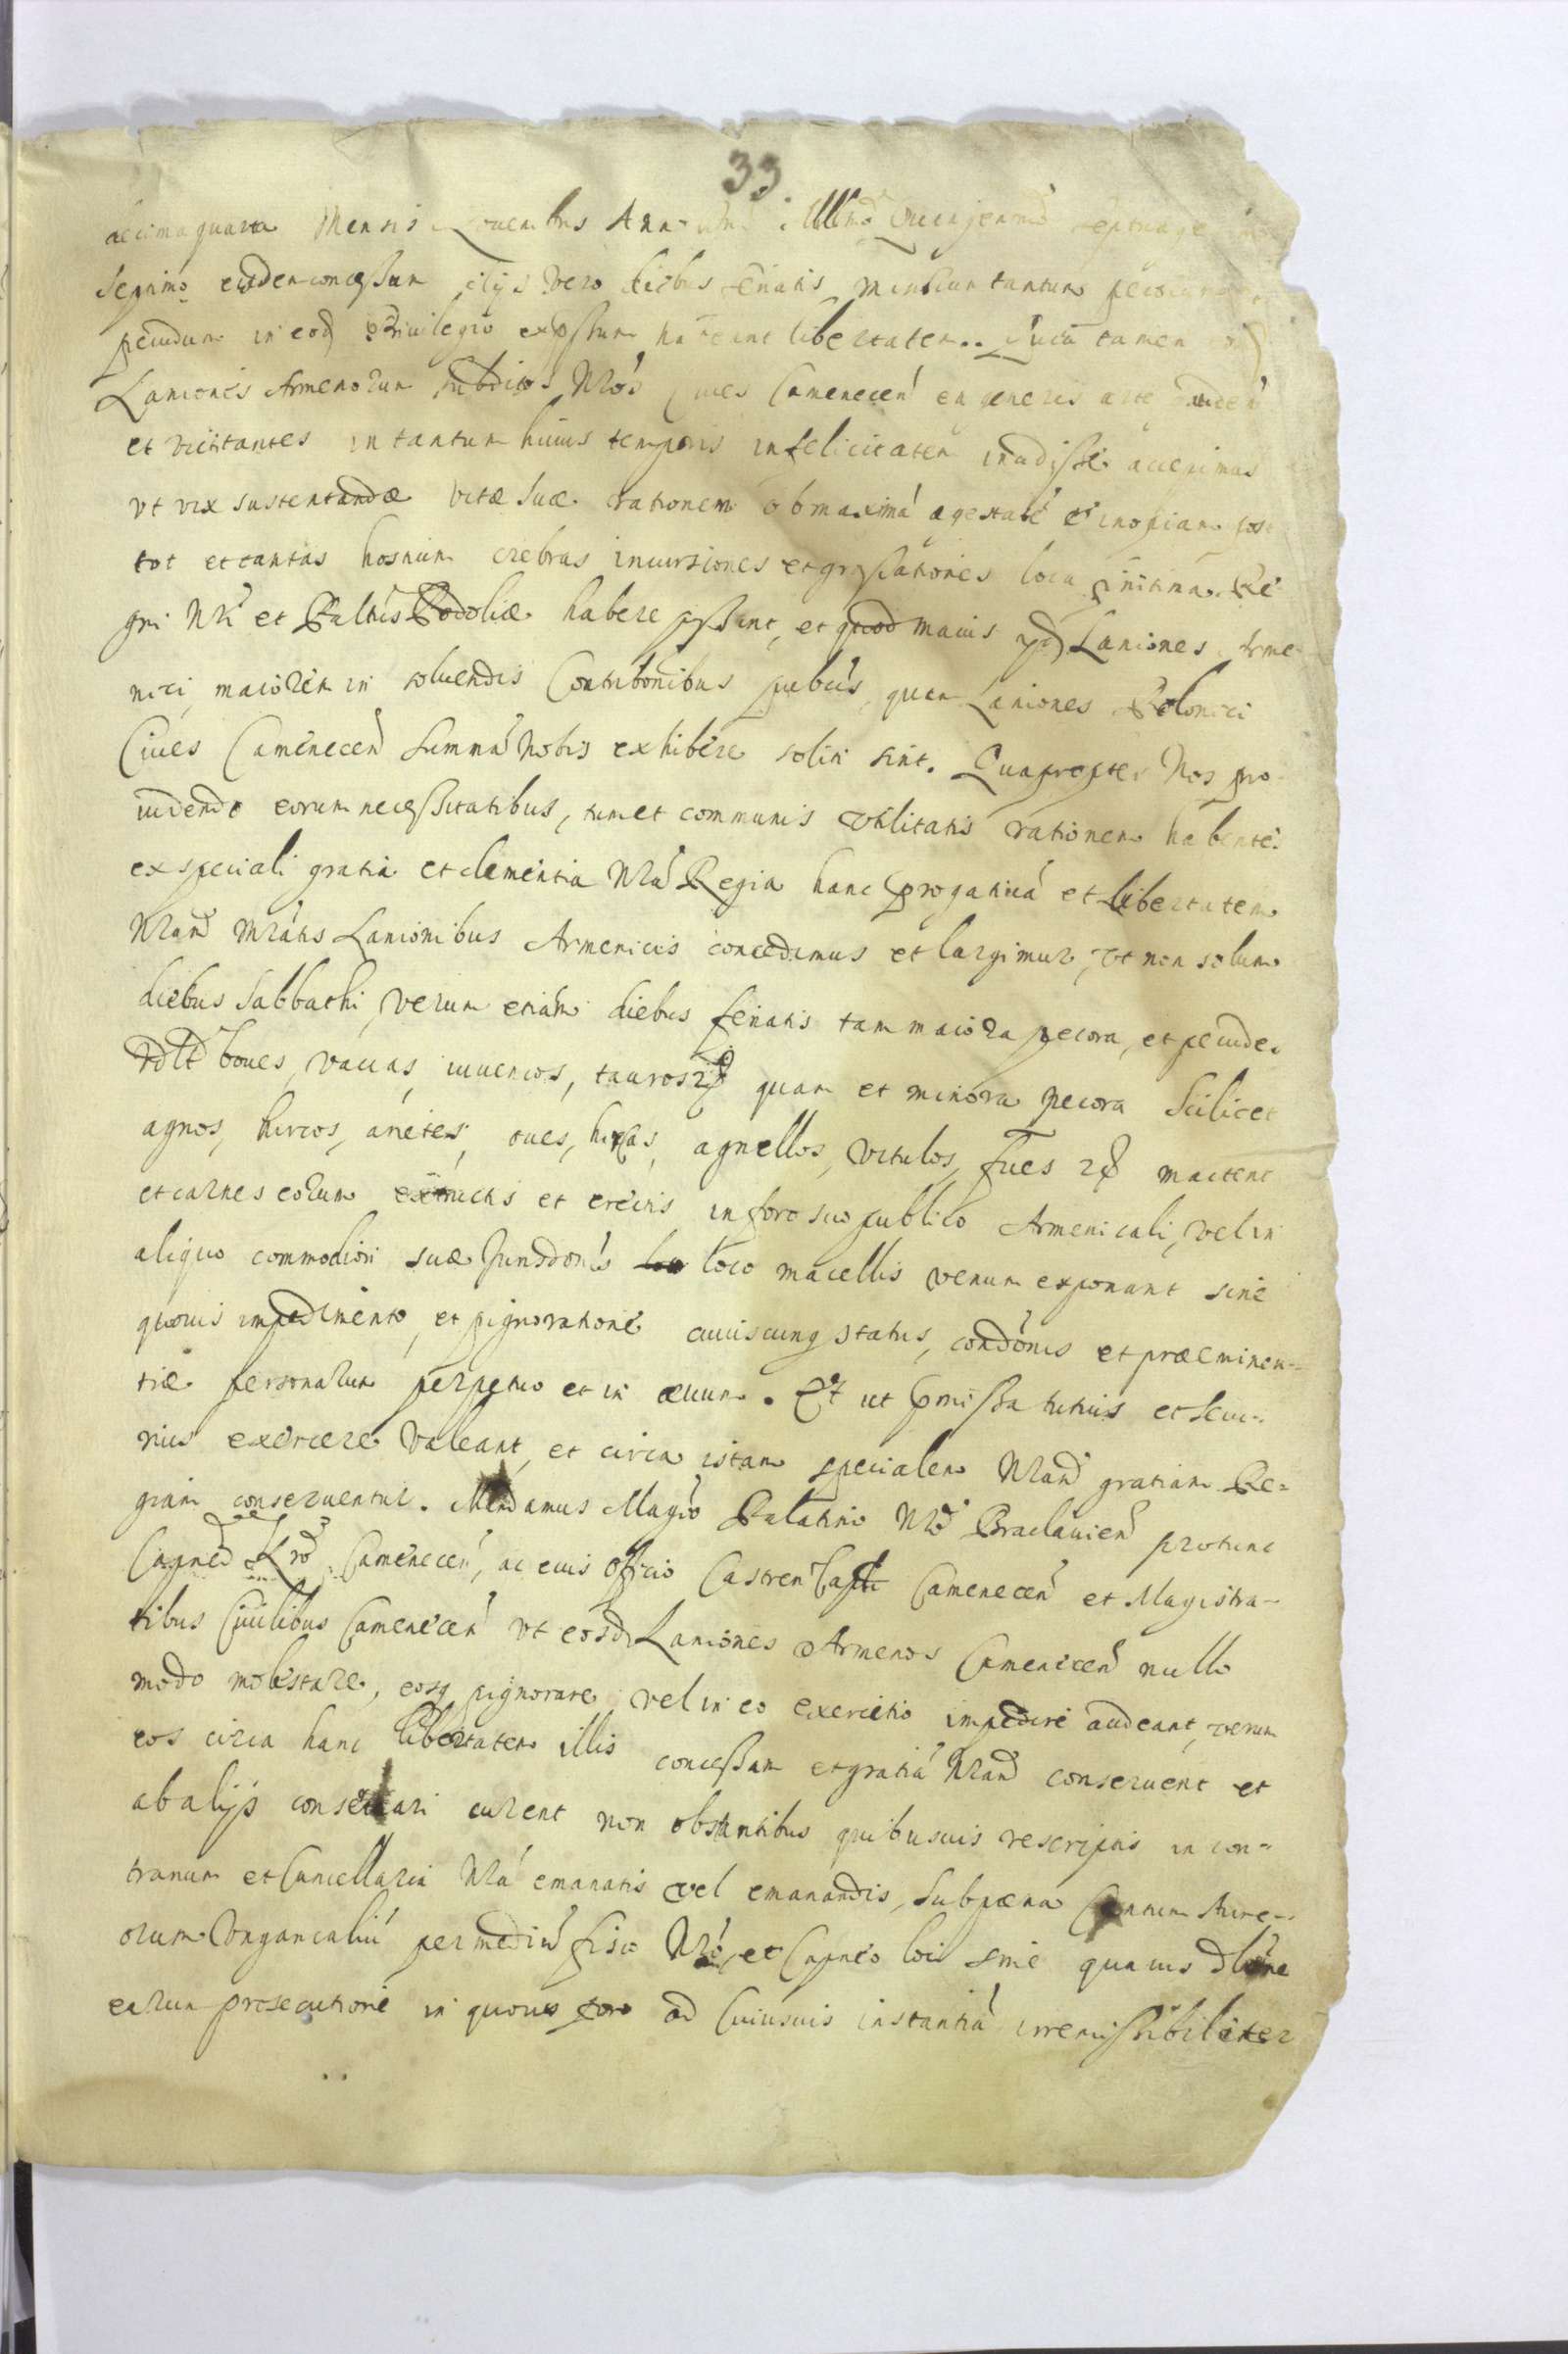 33
decima quarta Mensis Nouembris Anno Millmo Quingenmo septuage
septimo eisdem concessum alijs vero diebus feriatis minorum tantum pecorum
pecudum in eod Priuilegio expssum habeant libertatem. Quia tamen
Laniones Armenorum subditos Nros Ciues Camenecen eu generis arte
et victitantes in tantum huius temporis infelicitatem incidisse accepimus
vt vix sustentandæ vitæ suæ rationem ob maximá ægestaté et inopiam post
tot et tantas hostium crebras incursiones et grassationes loca finitima Re
gni Nri et Paltus Podoliæ habere possint, et quod maius ipsi Laniones Arme
nici maiorem in soluendis Contribonibus pubcis, quam Laniones Polonici
Ciues Camenecen summá Nobis exhibere soliti sint. Quapropter Nos pro
uidendo eorum necessitatibus, tum et communis vtilitatis rationem habentes
ex speciali gratia et clementia Nrá Regia hanc prrogatiuá et libertatem
Nram Mratis Lanionibus Armenicis concedimus et largimur, vt non solum
diebus Sabbathi, verum etiam diebus feriatis tam maiora pecora, et pecudes
boues, vaccas, iuuencos, tauros quam et minora pecora Scilicet
agnos, hircos, arietes, oues, hircas, agnellos, vitulos, sues mactent
et carnes eorum extructis et erectis in foro suo publico Armenicali, vel in
aliquo commodiori suæ Jurisdonis loco macellis venum exponant sine
quouis impedimento, et pignoratione cuiuscunq status, condonis et præeminen-
tiæ personarum perpetuo et in æuum. Et ut pmissa tutius et secu-
rius exercere valeant, et circa istam specialem Nram gratiam Re-
giam conseruentur. Mandamus Magco Palatino Nro Braclauien protunc
Capneo Nro Camenecen, ac eius officio Castren Capli Camenecen et Magistra-
tibus Ciuilibus Camenecen vt eosd Laniones Armenos Camenecen nullo
modo molestare, eosq pignorare vel in eo exercitio impedire audeant, verum
eos circa hanc libertatem illis concessam et gratiá Nram conseruent et
ab alijs conseruari curent non obstantibus quibusuis rescriptis in con-
trarium et Cancellaria Nrá emanatis vel emanandis, sub pæna Centum Aure-
orum Vngaricaliú per mediú fisco Nro et Capneo loci sine quauis dlone
earum prosecutione in quouis foro ad Cuiusuis instantiá irremissibiliter